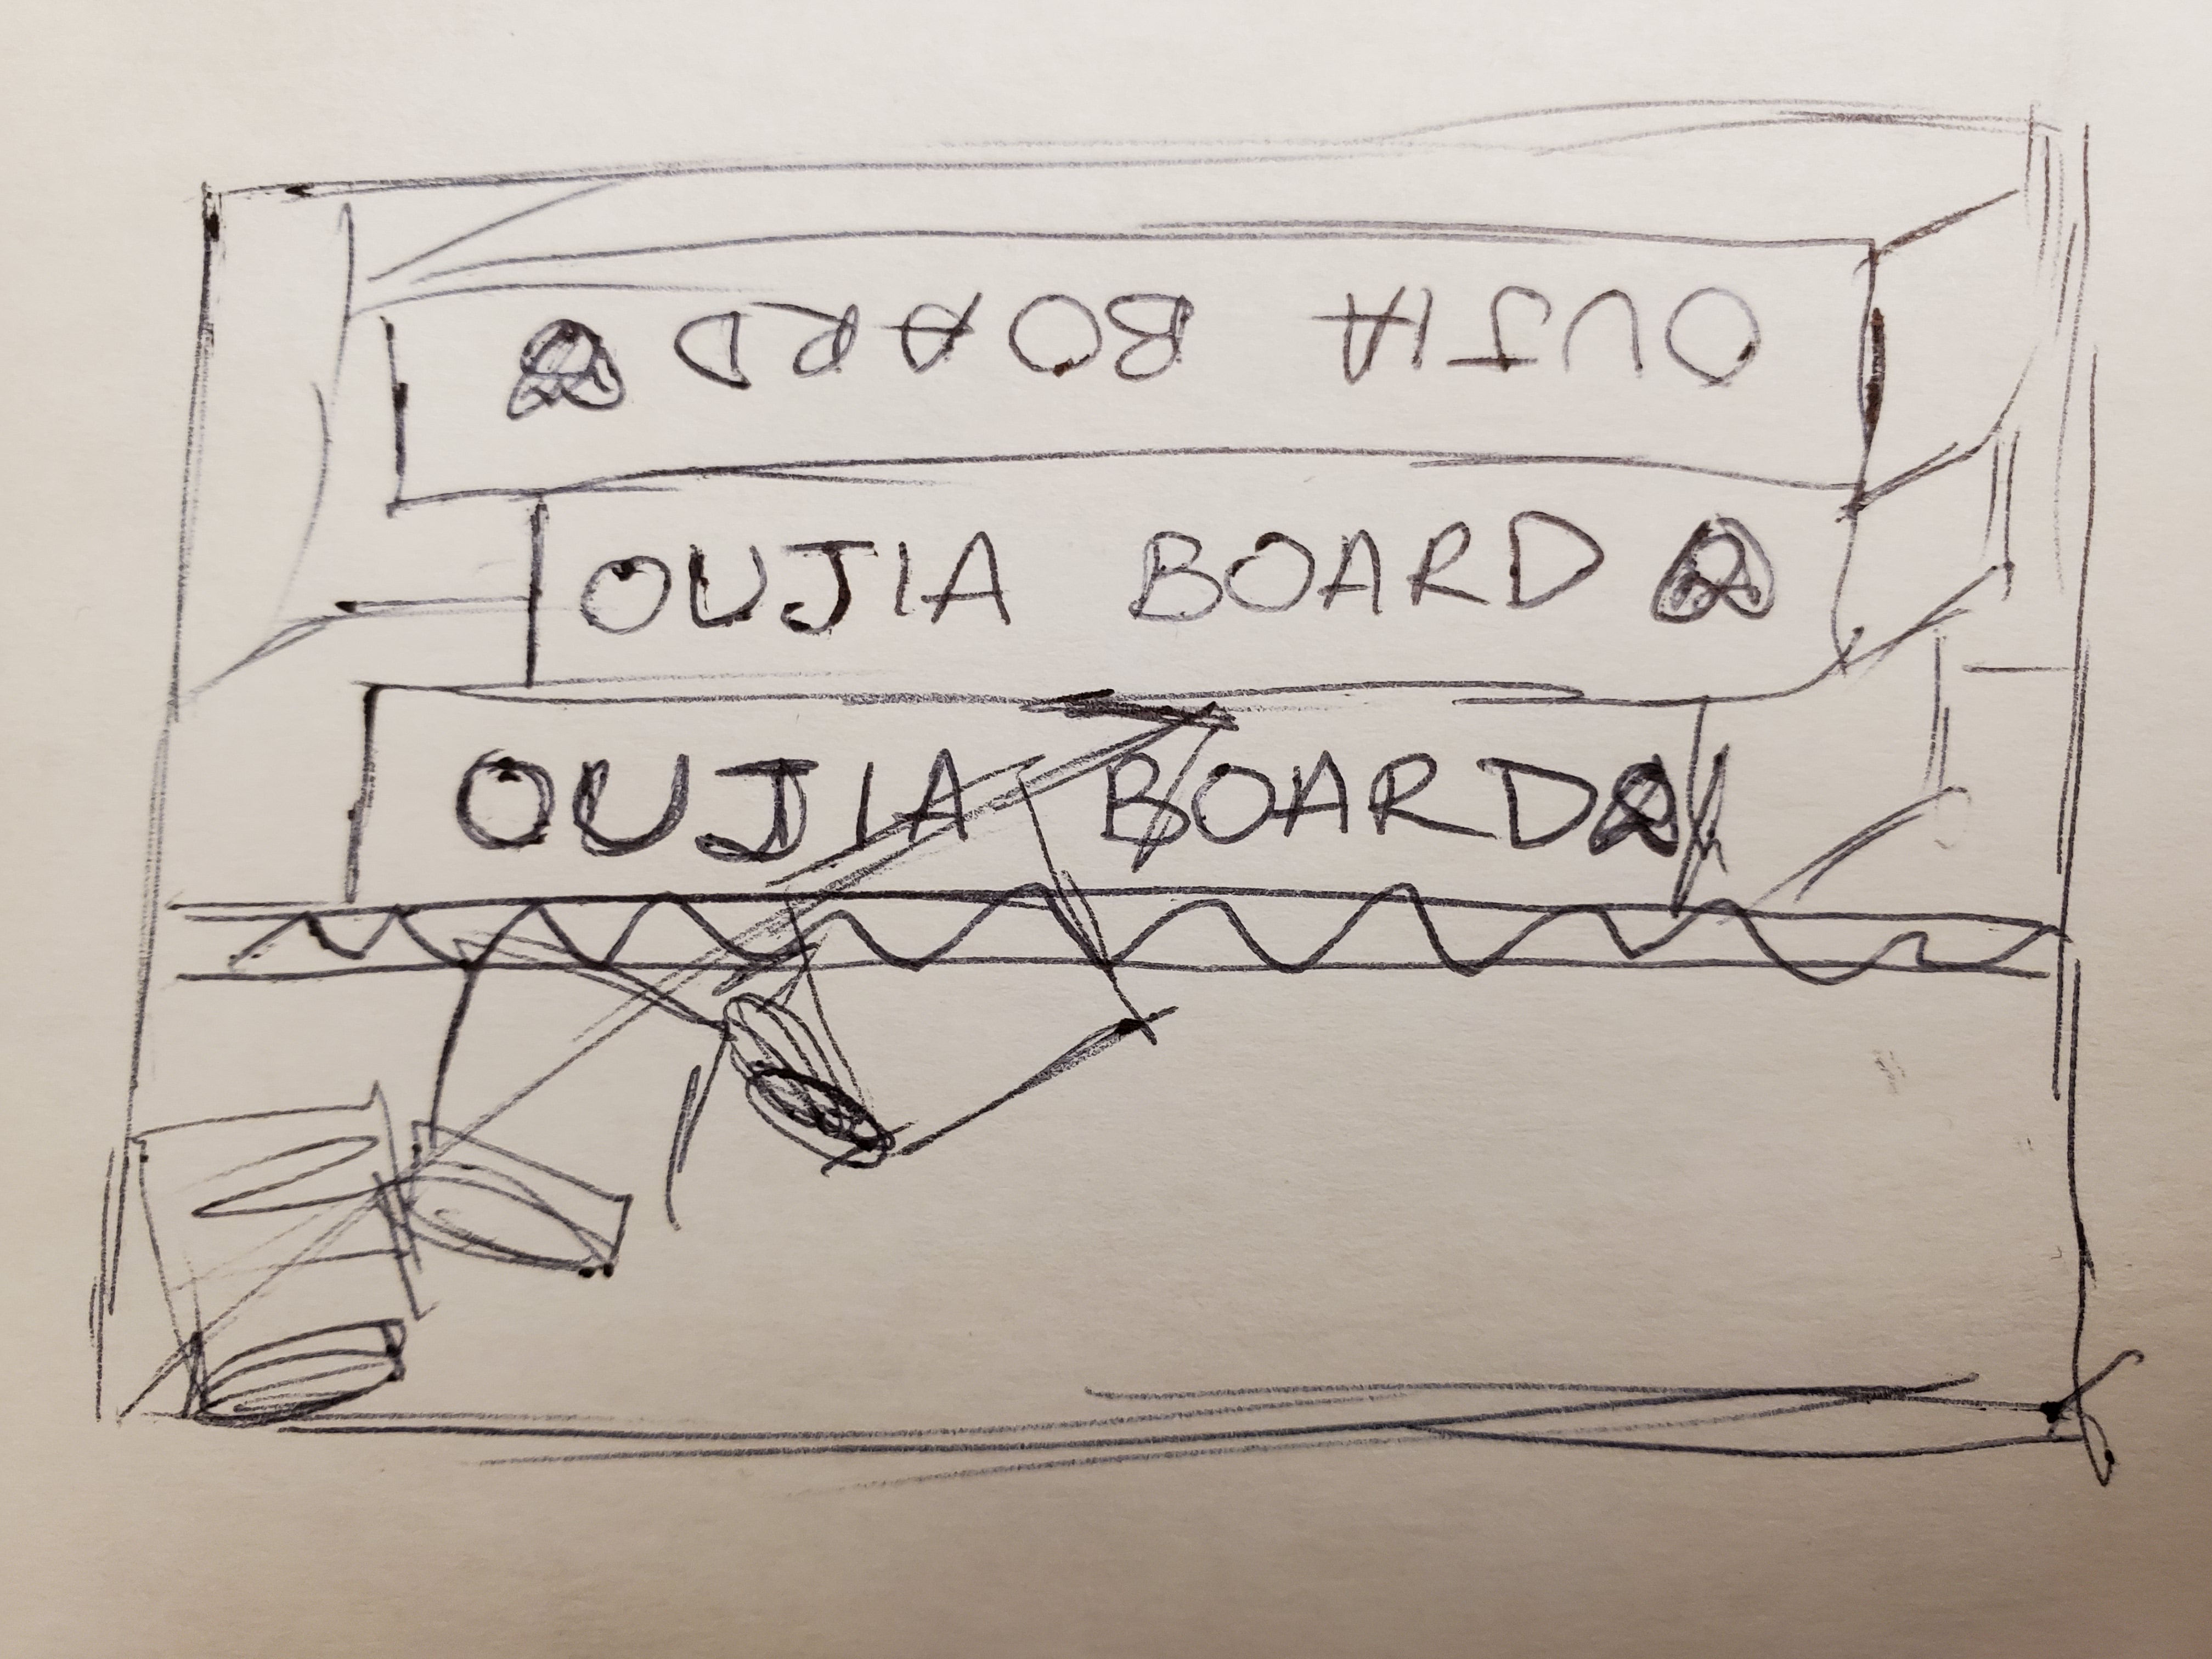 OUJIA BOARD
OUJIA BOARD
OUJIA BOARD